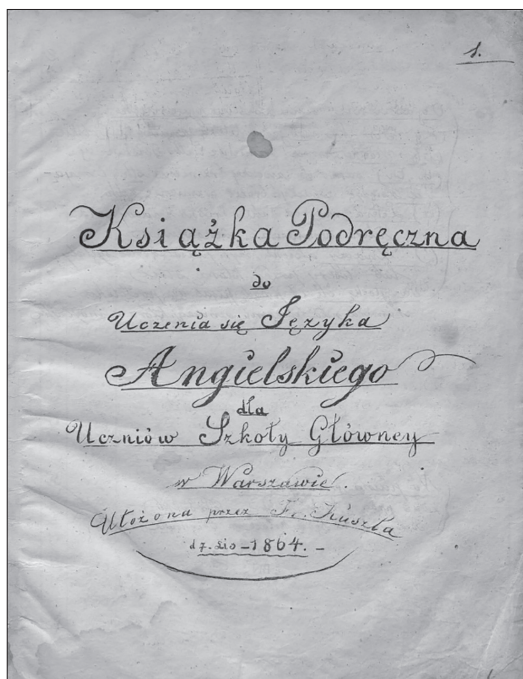 1.
Książka Podręczna
do
Uczenia się Języka
Angielskiego
dla
Uczniów Szkoły Główney
w Warszawie.
Ułożona przez
1864.